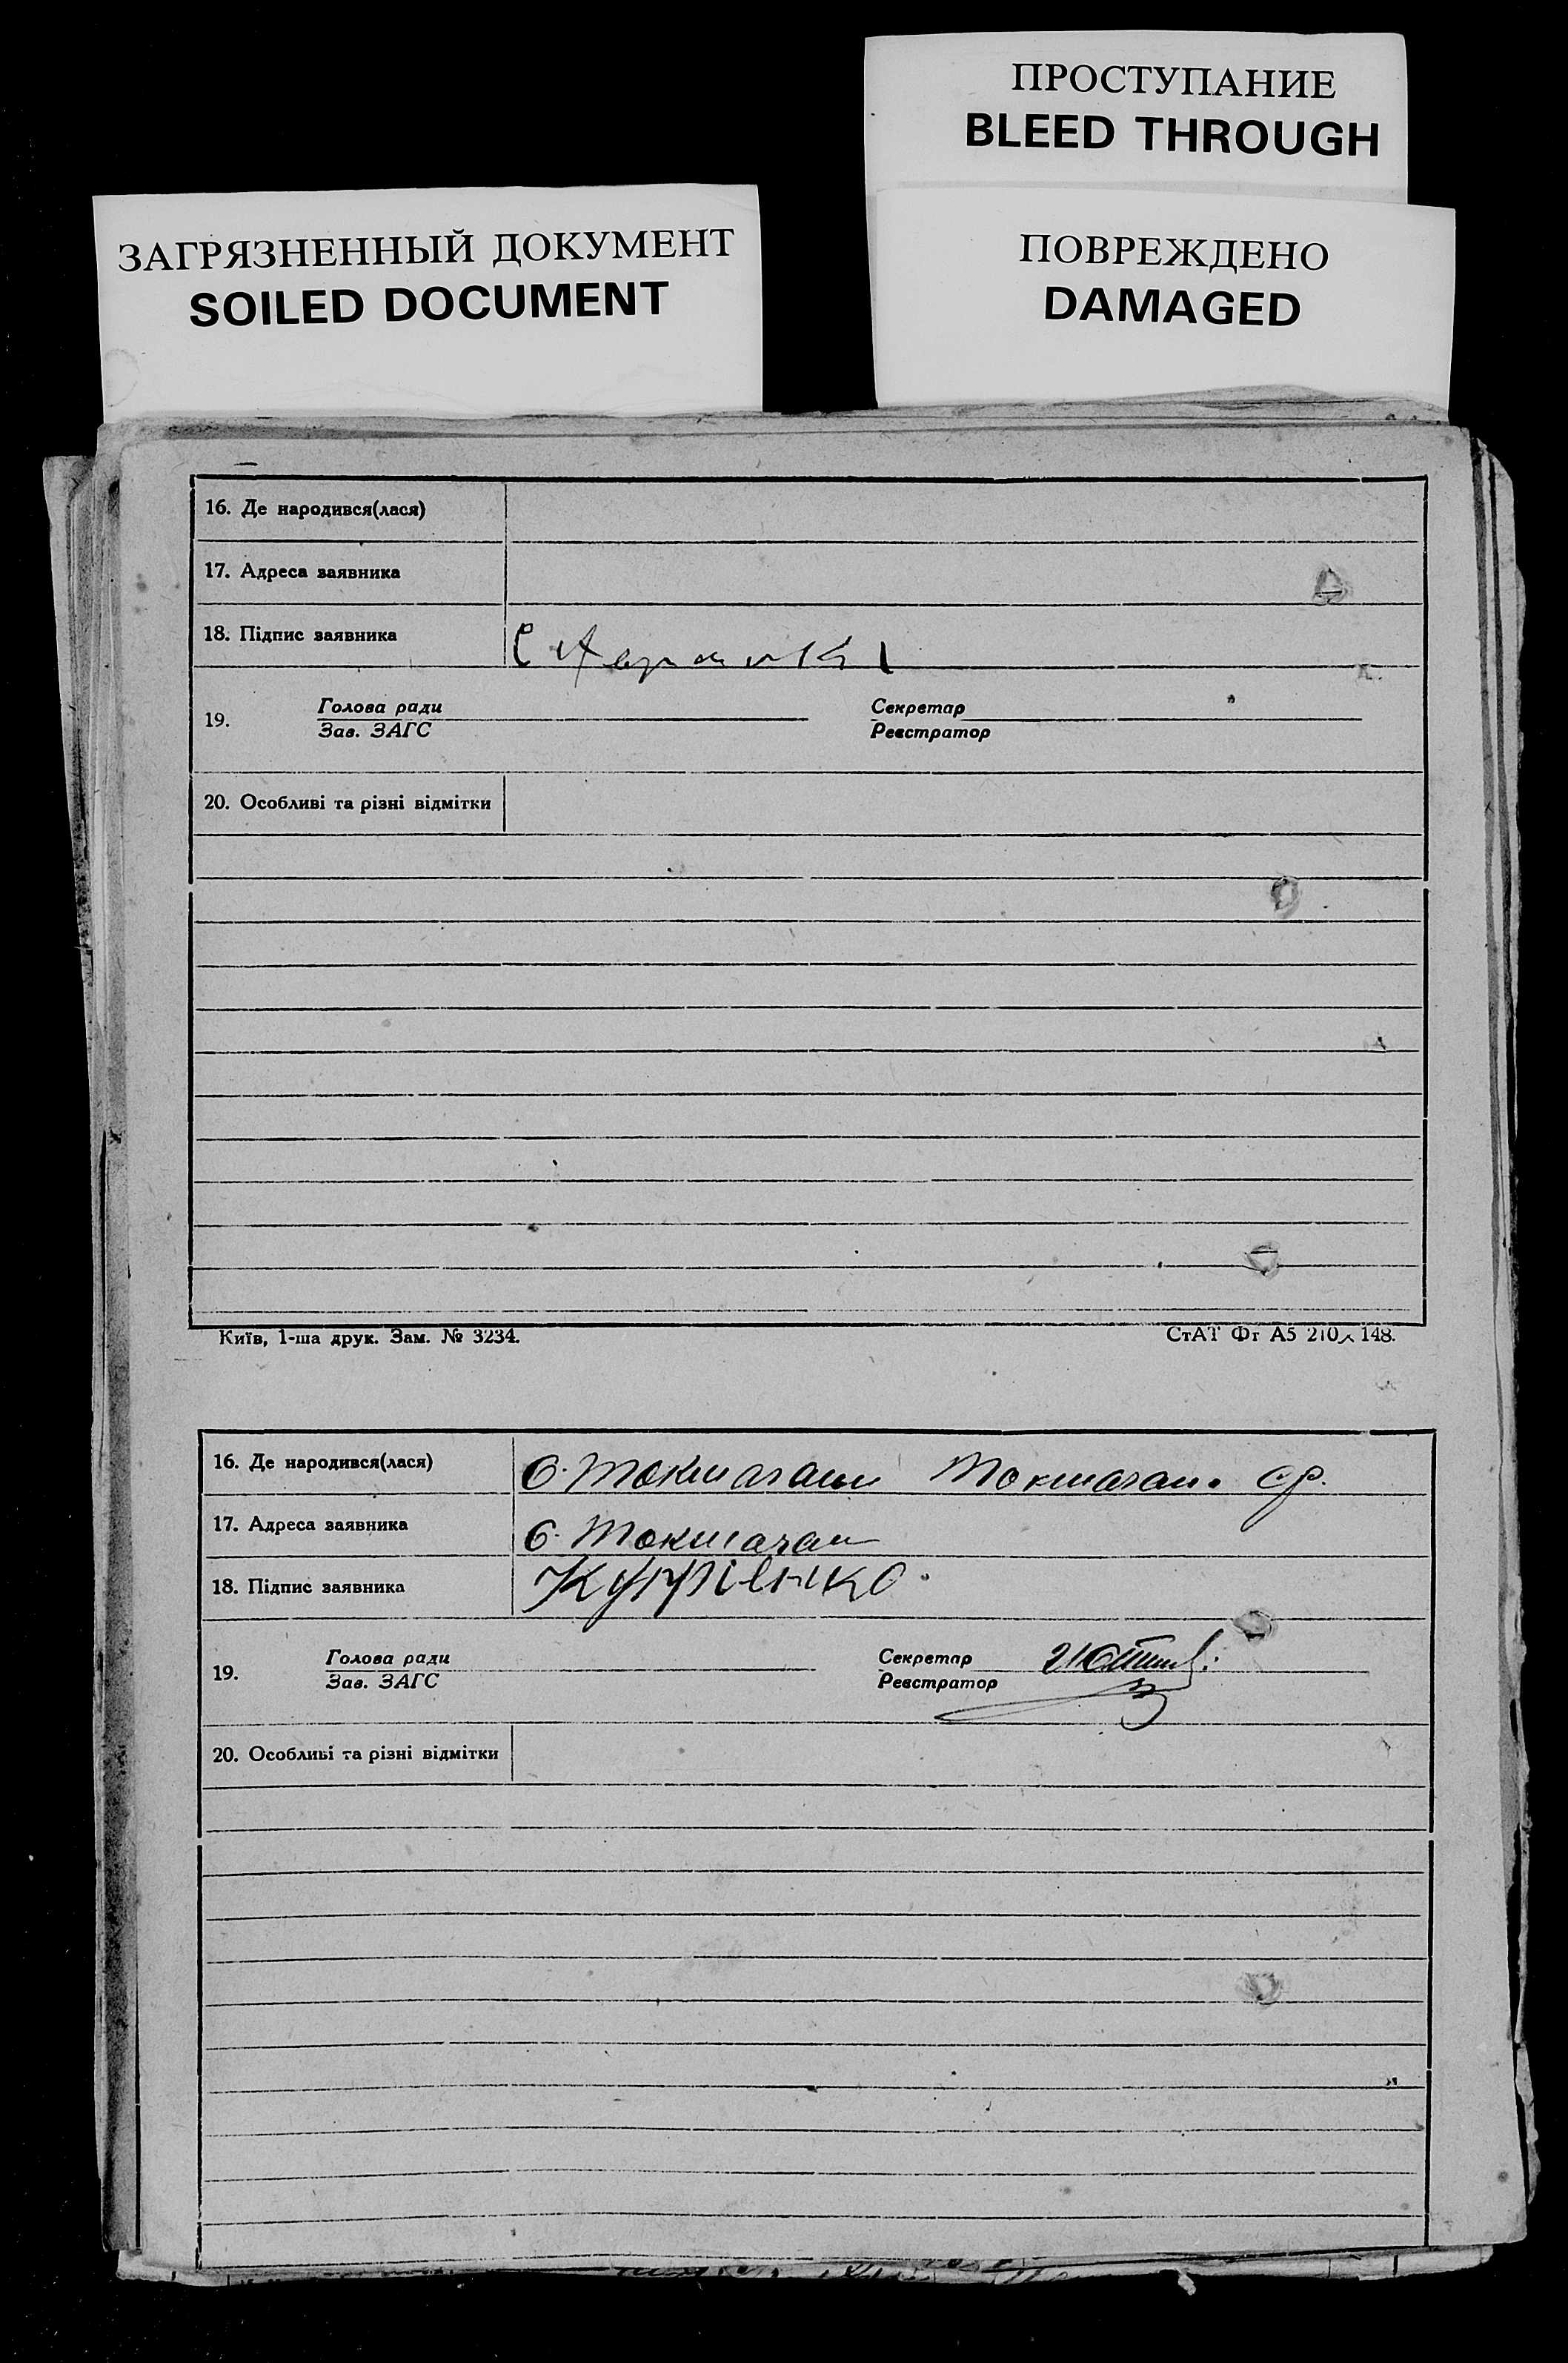 ПРОСТУПАНИЕ
BLEED THROUGH
ЗАГРЯЗНЕННЫЙ ДОКУМЕНТ
SOILED DOCUMENT
ПОВРЕЖДЕНО
DAMAGED
16. Де народився(лася)
17. Адреса заявника
18. Підпис заявника
19. Голова ради Секретар
Зав. ЗАГС Реєстратор
20. Особливі та різні відмітки
Київ, 1-ша друк. Зам. № 3234. СтАТ Фг А5 210×148.
16. Де народився(лася)
17. Адреса заявника
18. Підпис заявника Купрієнко
19. Голова ради Секретар
Зав. ЗАГС Реєстратор
20. Особливі та різні відмітки